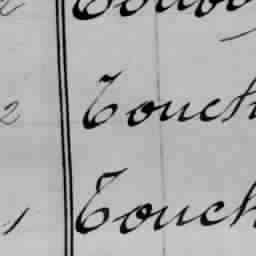 2 Touch
1 Touch